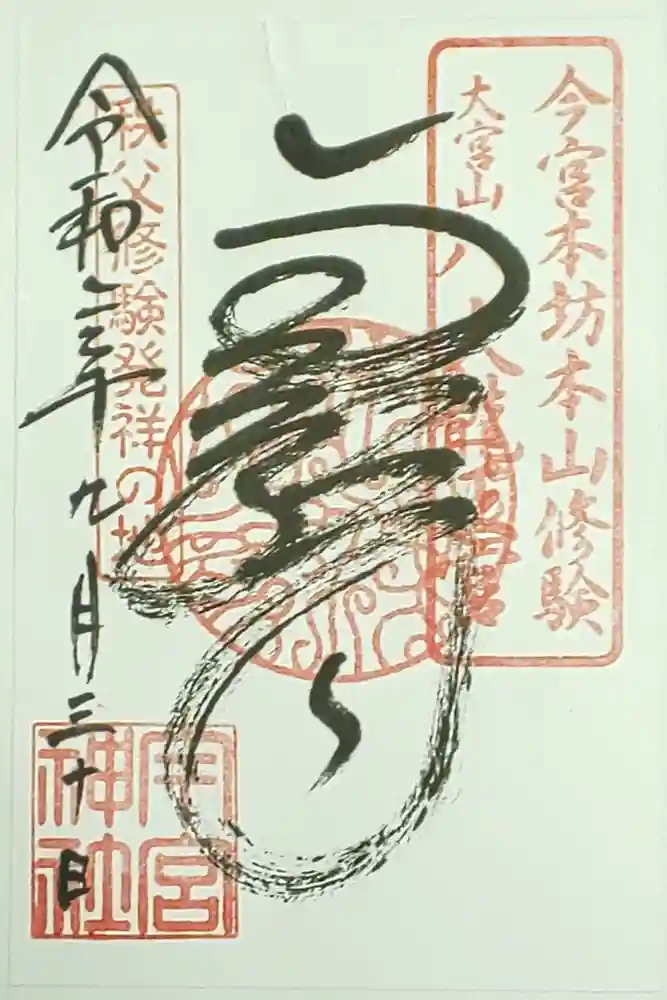 今宮本坊本山修験
大宮山八大龍王宮
秩父修験発祥の地
令和三年九月三十日
今宮神社